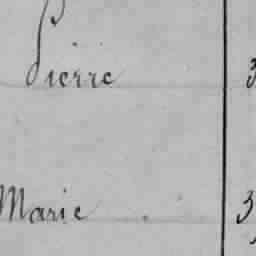 Pierre 3
Marie 3